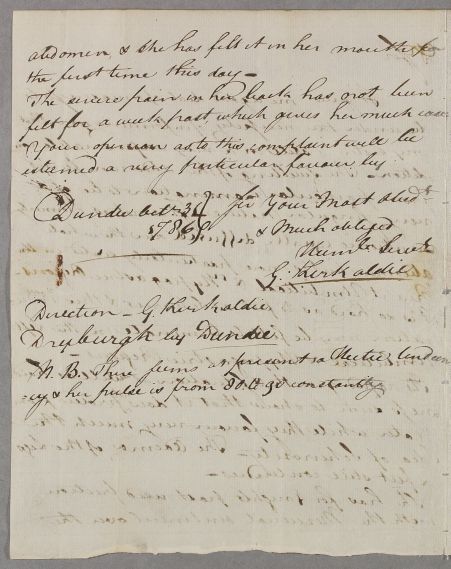 abdomen & she has felt it in her mouth for
the first time this day —
The severe pain in her back has not been
felt for a week past which gives her much ease
Your opinion as to this complaint will be
esteemed a very particular favour by
Dundee Octr 3d Sir Your Most obedt
1786 & Much obliged
Humle Servt
G. Kirkaldie
Direction — G Kirkaldie
Drybrugh by Dundee
N.B. There seems at present a Hectic tenden
-cy & her pulse is from 80 to 90 constantly